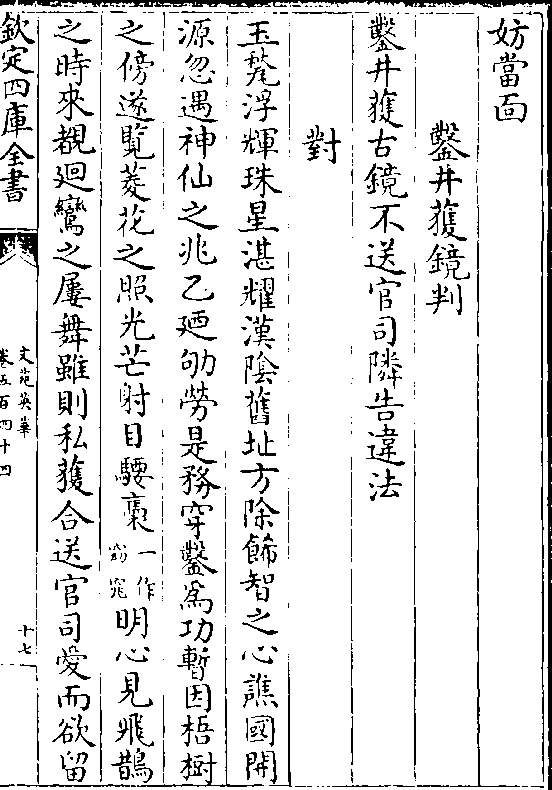 妨當面
鑿井獲鏡判
鑿井獲古鏡不送官司隣告違法
對
玉甃浮輝珠星湛耀漢陰舊址方除飾智之心譙國開
源忽遇神仙之兆乙廼劬勞是務穿鑿爲功暫因梧樹
之傍遂覽菱花之照光芒射目騕褭一作窈窕明心見飛鵲
之時來覩迴鸞之屢舞雖則私獲合送官司愛而欲留
欽定四庫全書
文苑英華
卷五百四十四
十七